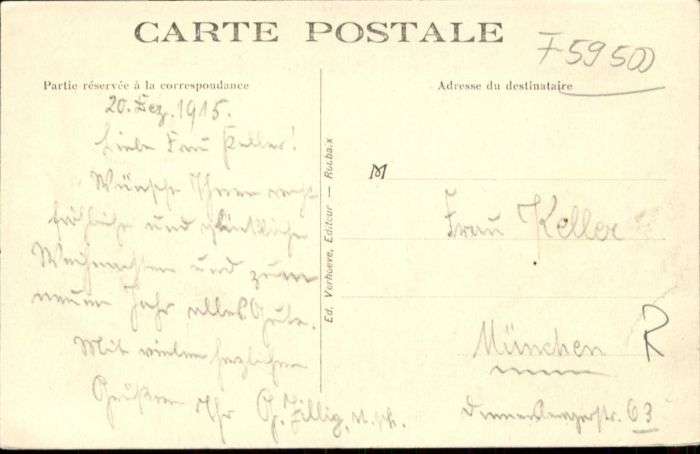 CARTE POSTALE
F 59500
Partie réservée à la correspondance
Adresse du destinataire
20. Dez. 1915.
Liebe Frau Keller!
Wünsche Ihnen recht
fröhliche und glückliche
Weihnachten und zum
neuen Jahr alles Gute.
Mit vielen herzlichen
Grüßen Ihr G. Zillig,
Ed. Verhoeve, Editeur — Roubaix
M
Frau Keller
München
R
63